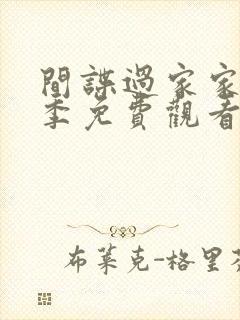 間諜過家家
季免費觀看
布萊克-格里芬